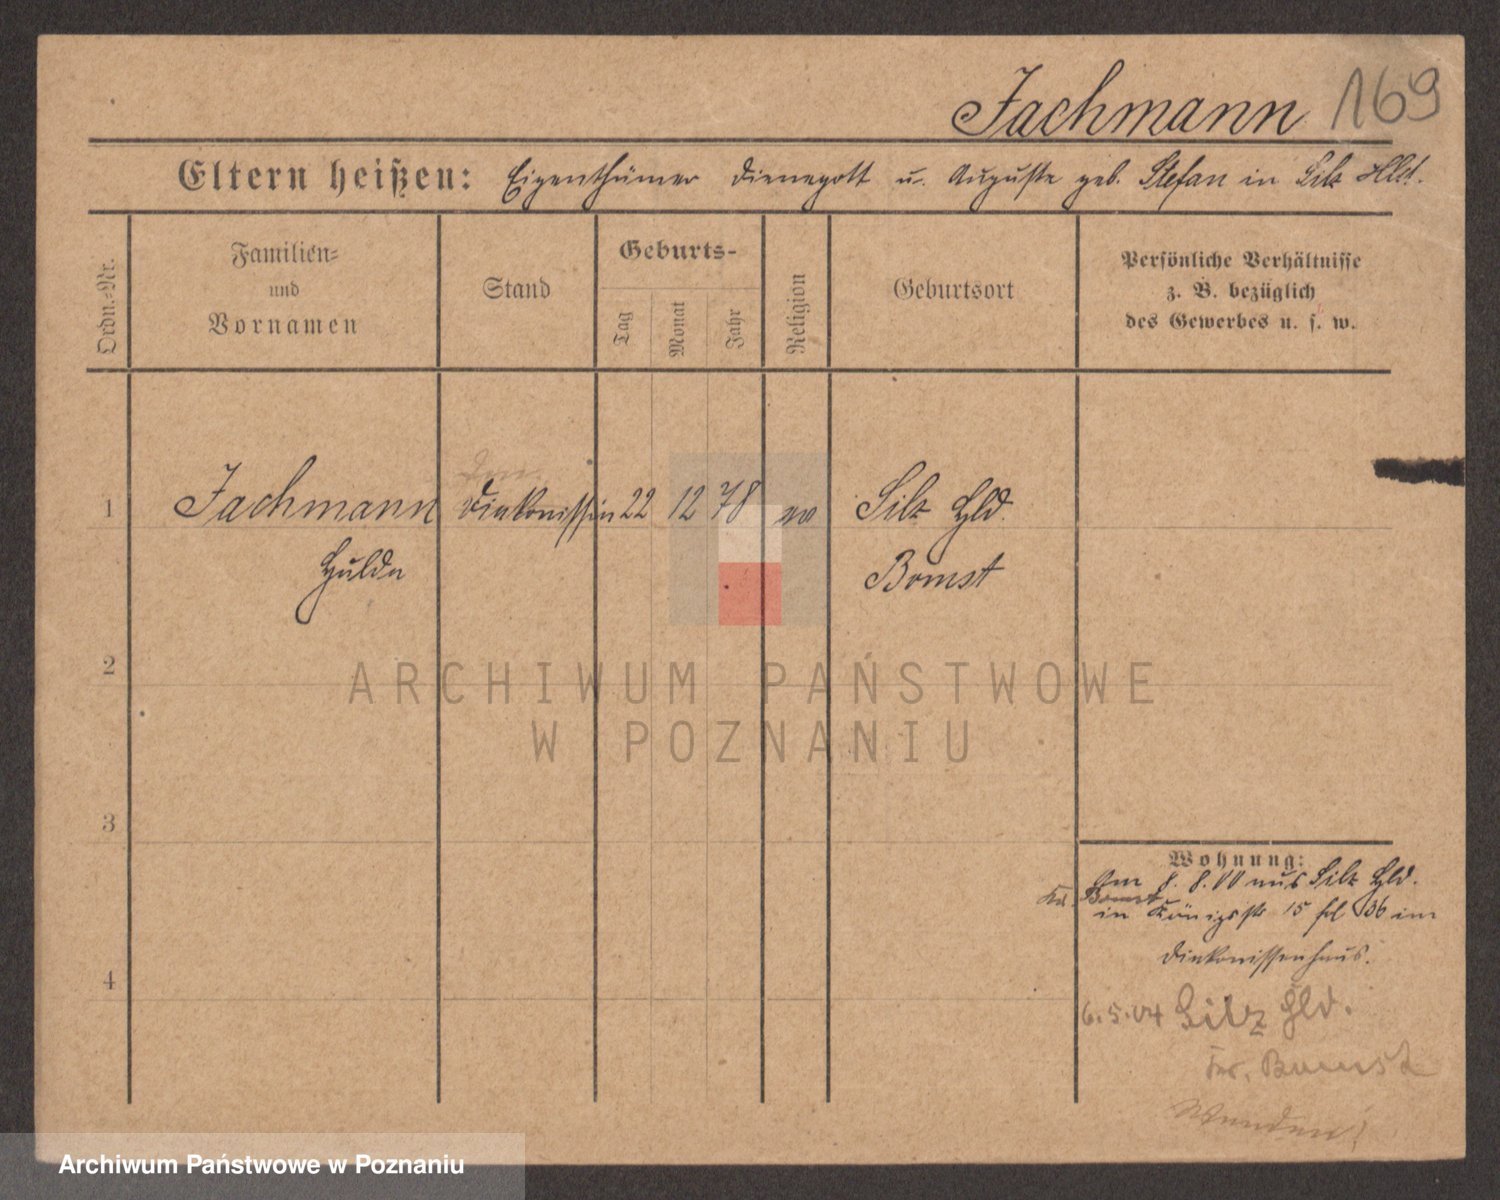 Jachmann 169
Eltern heißen: Eigenthümer Dienegott u. Auguste geb. Stefan in Silz Hld.
Ordn.-Nr.
Familien-
und
Vornamen
Stand
Geburts-
Tag
Monat
Jahr
Religion
Geburtsort
Persönliche Verhältnisse
z. B. bezüglich
des Gewerbes u. s. w.
1 Jachmann Diakonissin 22 12 78 ev Silz Hld.
Hulda Bomst
2
3
4
ARCHIWUM PAŃSTWOWE
W POZNANIU
Wohnung:
Am 8. 8. 00 aus Silz Hld.
Kr. Bomst
in Königstr 15 bei 36 im
Diakonissenhaus.
6.5.04 Silz Hld.
Kr. Bomst
Archiwum Państwowe w Poznaniu